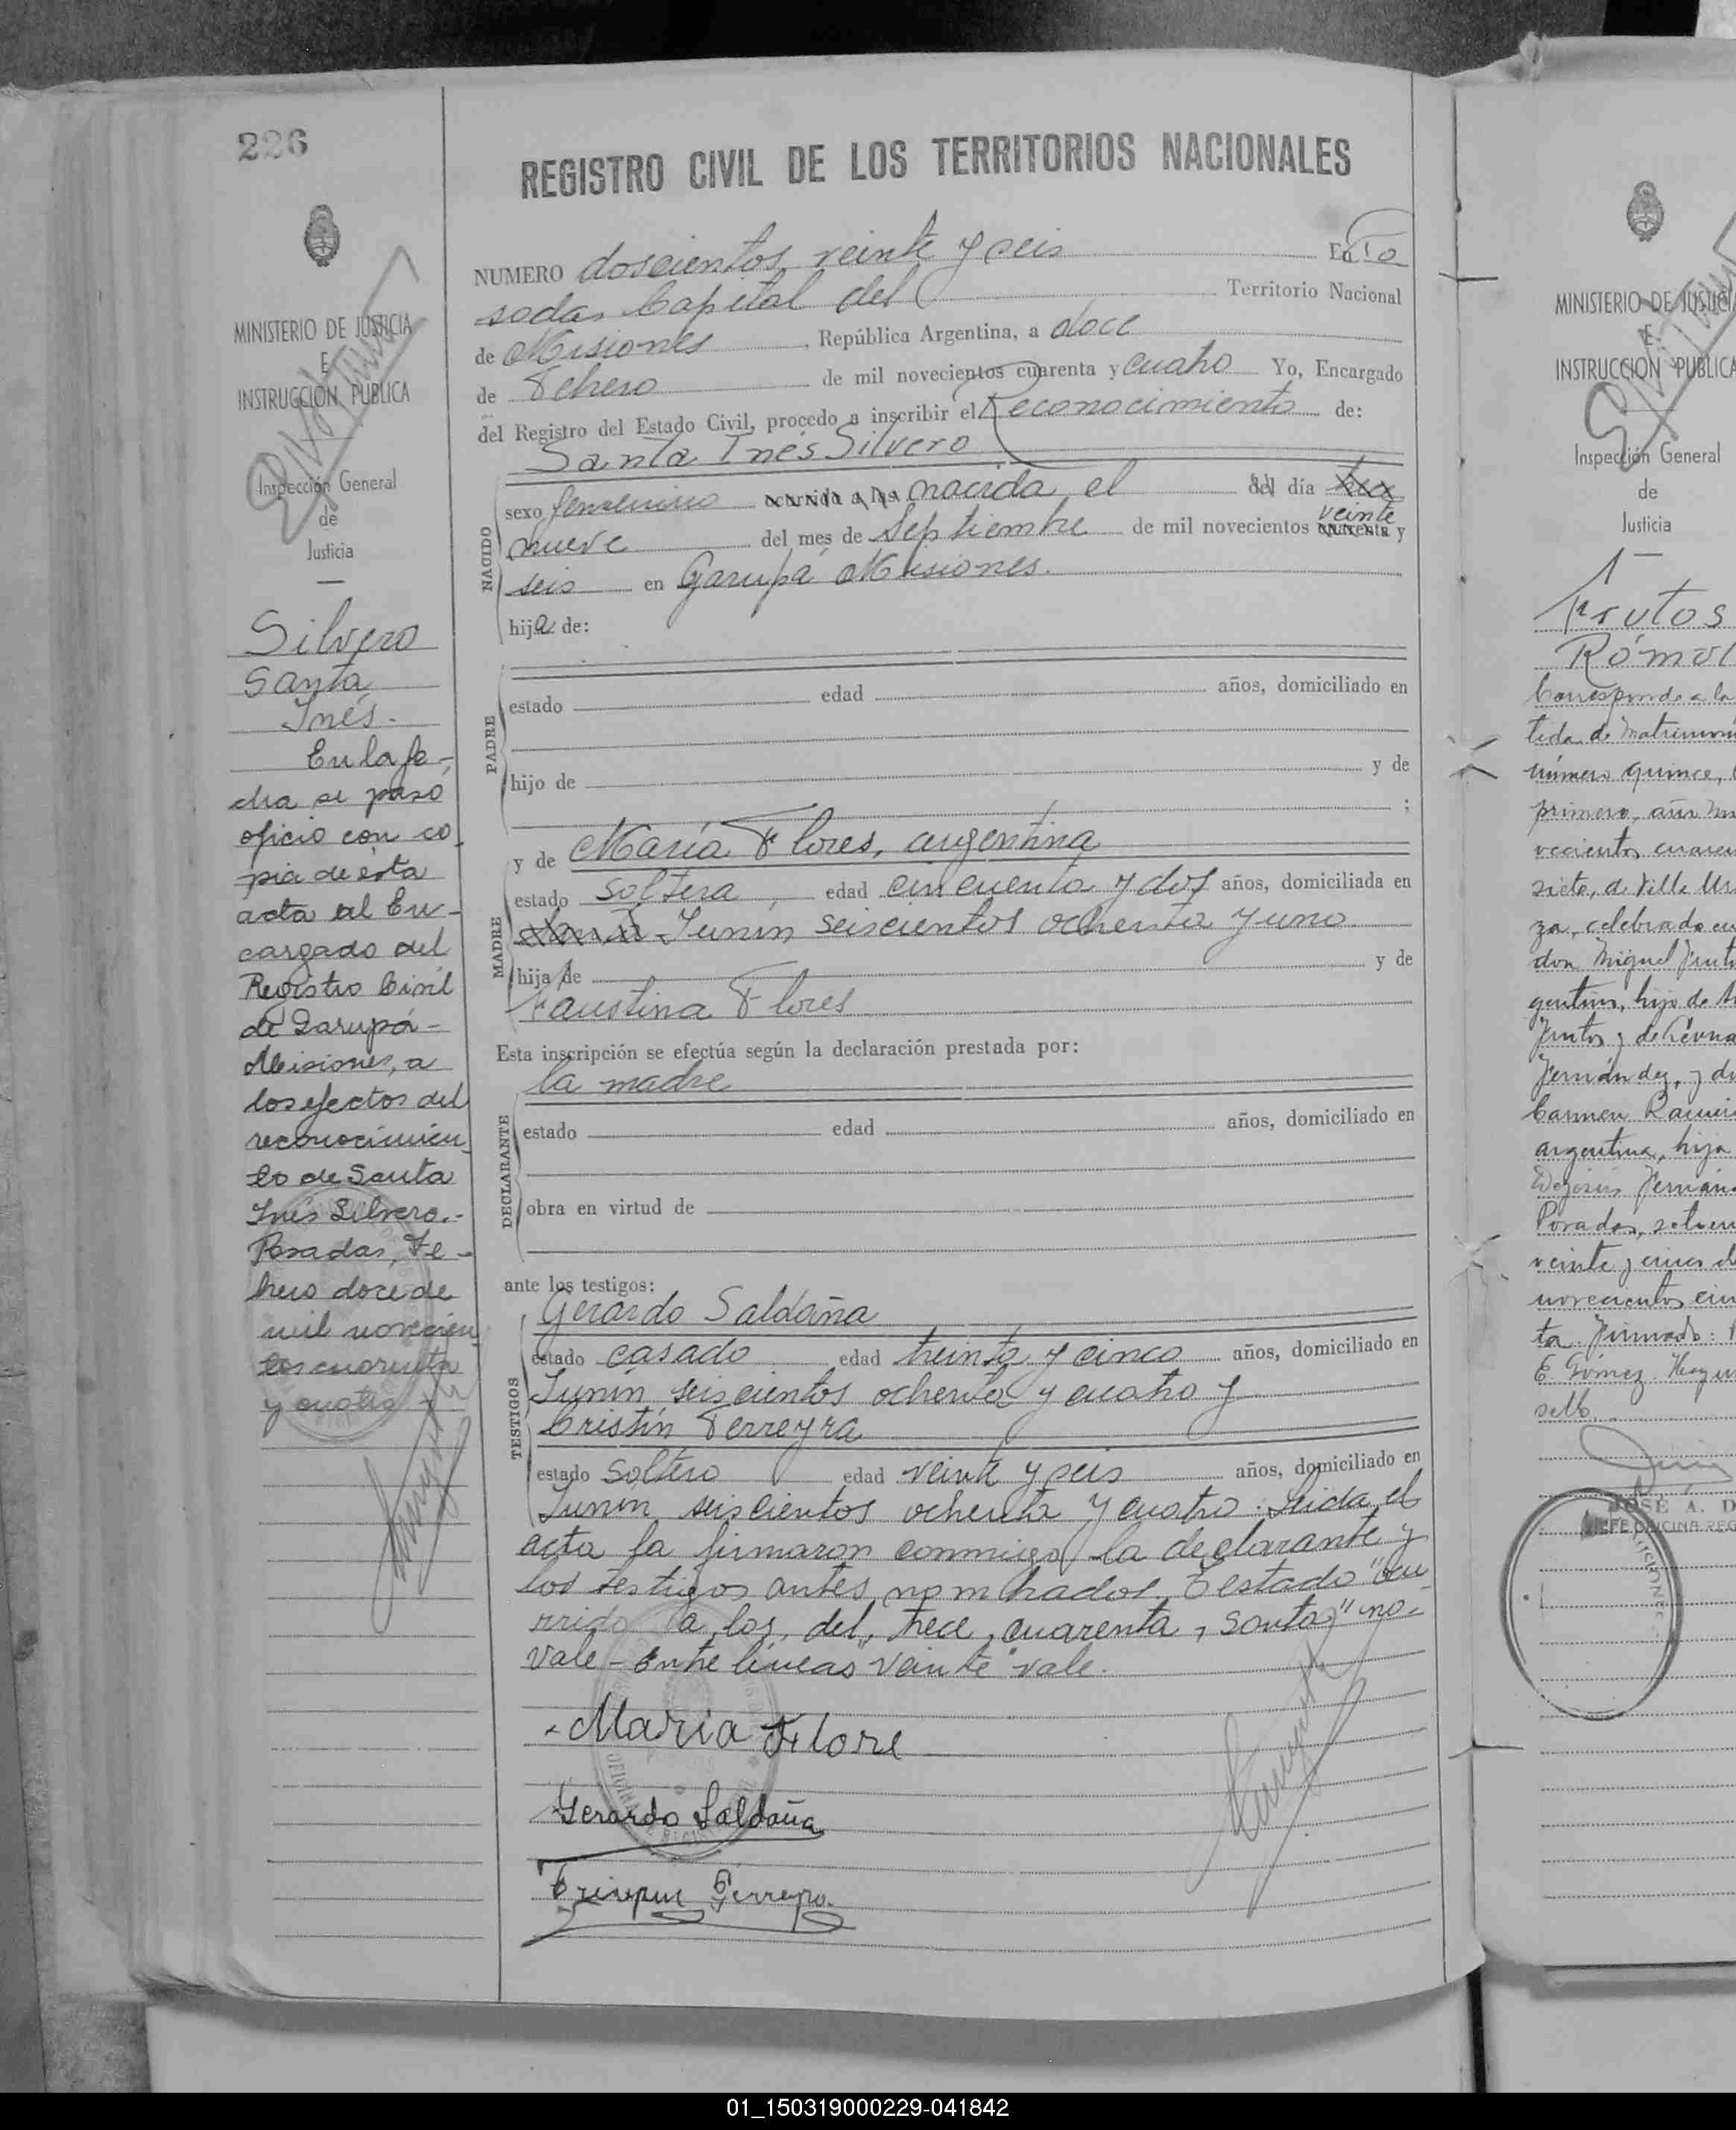 226
REGISTRO CIVIL DE LOS TERRITORIOS NACIONALES
NUMERO doscientos veinte y seis En Po
sadas Capital del Territorio Nacional
de Misiones, República Argentina, a doce
de Febrero de mil novecientos cuarenta y cuatro Yo, Encargado
del Registro del Estado Civil, procedo a inscribir el Reconocimiento de:
Santa Inés Silvero
NACIDO
sexo femenino ocurrido a las nacida el del día trece
veinte
nueve del mes de Septiembre de mil novecientos cuarenta y
seis en Garupá Misiones.
hija de:
PADRE
estado edad años, domiciliado en
hijo de y de
;
MADRE
y de María Flores, argentina
estado soltera, edad cincuenta y dos años, domiciliada en
Junín seiscientos ochenta y uno.
hija de y de
Faustina Flores
Esta inscripción se efectúa según la declaración prestada por:
la madre
DECLARANTE
estado edad años, domiciliado en
obra en virtud de
ante los testigos:
TESTIGOS
Gerardo Saldaña
estado casado edad treinta y cinco años, domiciliado en
Junín seiscientos ochenta y cuatro y
Cristín Ferreyra
estado soltero edad veinte y seis años, domiciliado en
Junín seiscientos ochenta y cuatro. Leida el
acta la firmaron conmigo la declarante y
los testigos antes nombrados. Testado "ocu
rrido a las, del, trece, cuarenta, Santa" no
vale - Entre líneas "veinte" vale.
Maria Flore
Gerardo Saldaña
Ferreyra
MINISTERIO DE JUSTICIA
E
INSTRUCCIÓN PUBLICA
Inspección General
de
Justicia
Silvero
Santa
Inés.-
En la fe-
cha se pasó
oficio con co
pia de ésta
acta al En-
cargado del
Registro Civil
de Garupá-
Misiones, a
los efectos del
reconocimien
to de Santa
Inés Silvero.-
Posadas, Fe-
brero doce de
mil novecien
tos cuarenta
y cuatro
MINISTERIO DE JUSTICI
E
INSTRUCCIÓN PUBLICA
Inspección General
de
Justicia
Frutos
Rómul
Corresponde a la
tida de Matrimoni
número quince,
primero, año mi
vecientos cuaren
siete, de Villa Ur
za, celebrado en
don Miguel Frut
gentino, hijo de
Frutos y de
Fernández, y d
Carmen Ramir
argentina, hija
Fernán
Posadas, setiem
veinte y cinco d
novecientos cin
ta. Firmado:
E. Gómez. Hay u
sello
JOSÉ A. D
JEFE OFICINA REG
01_150319000229-041842